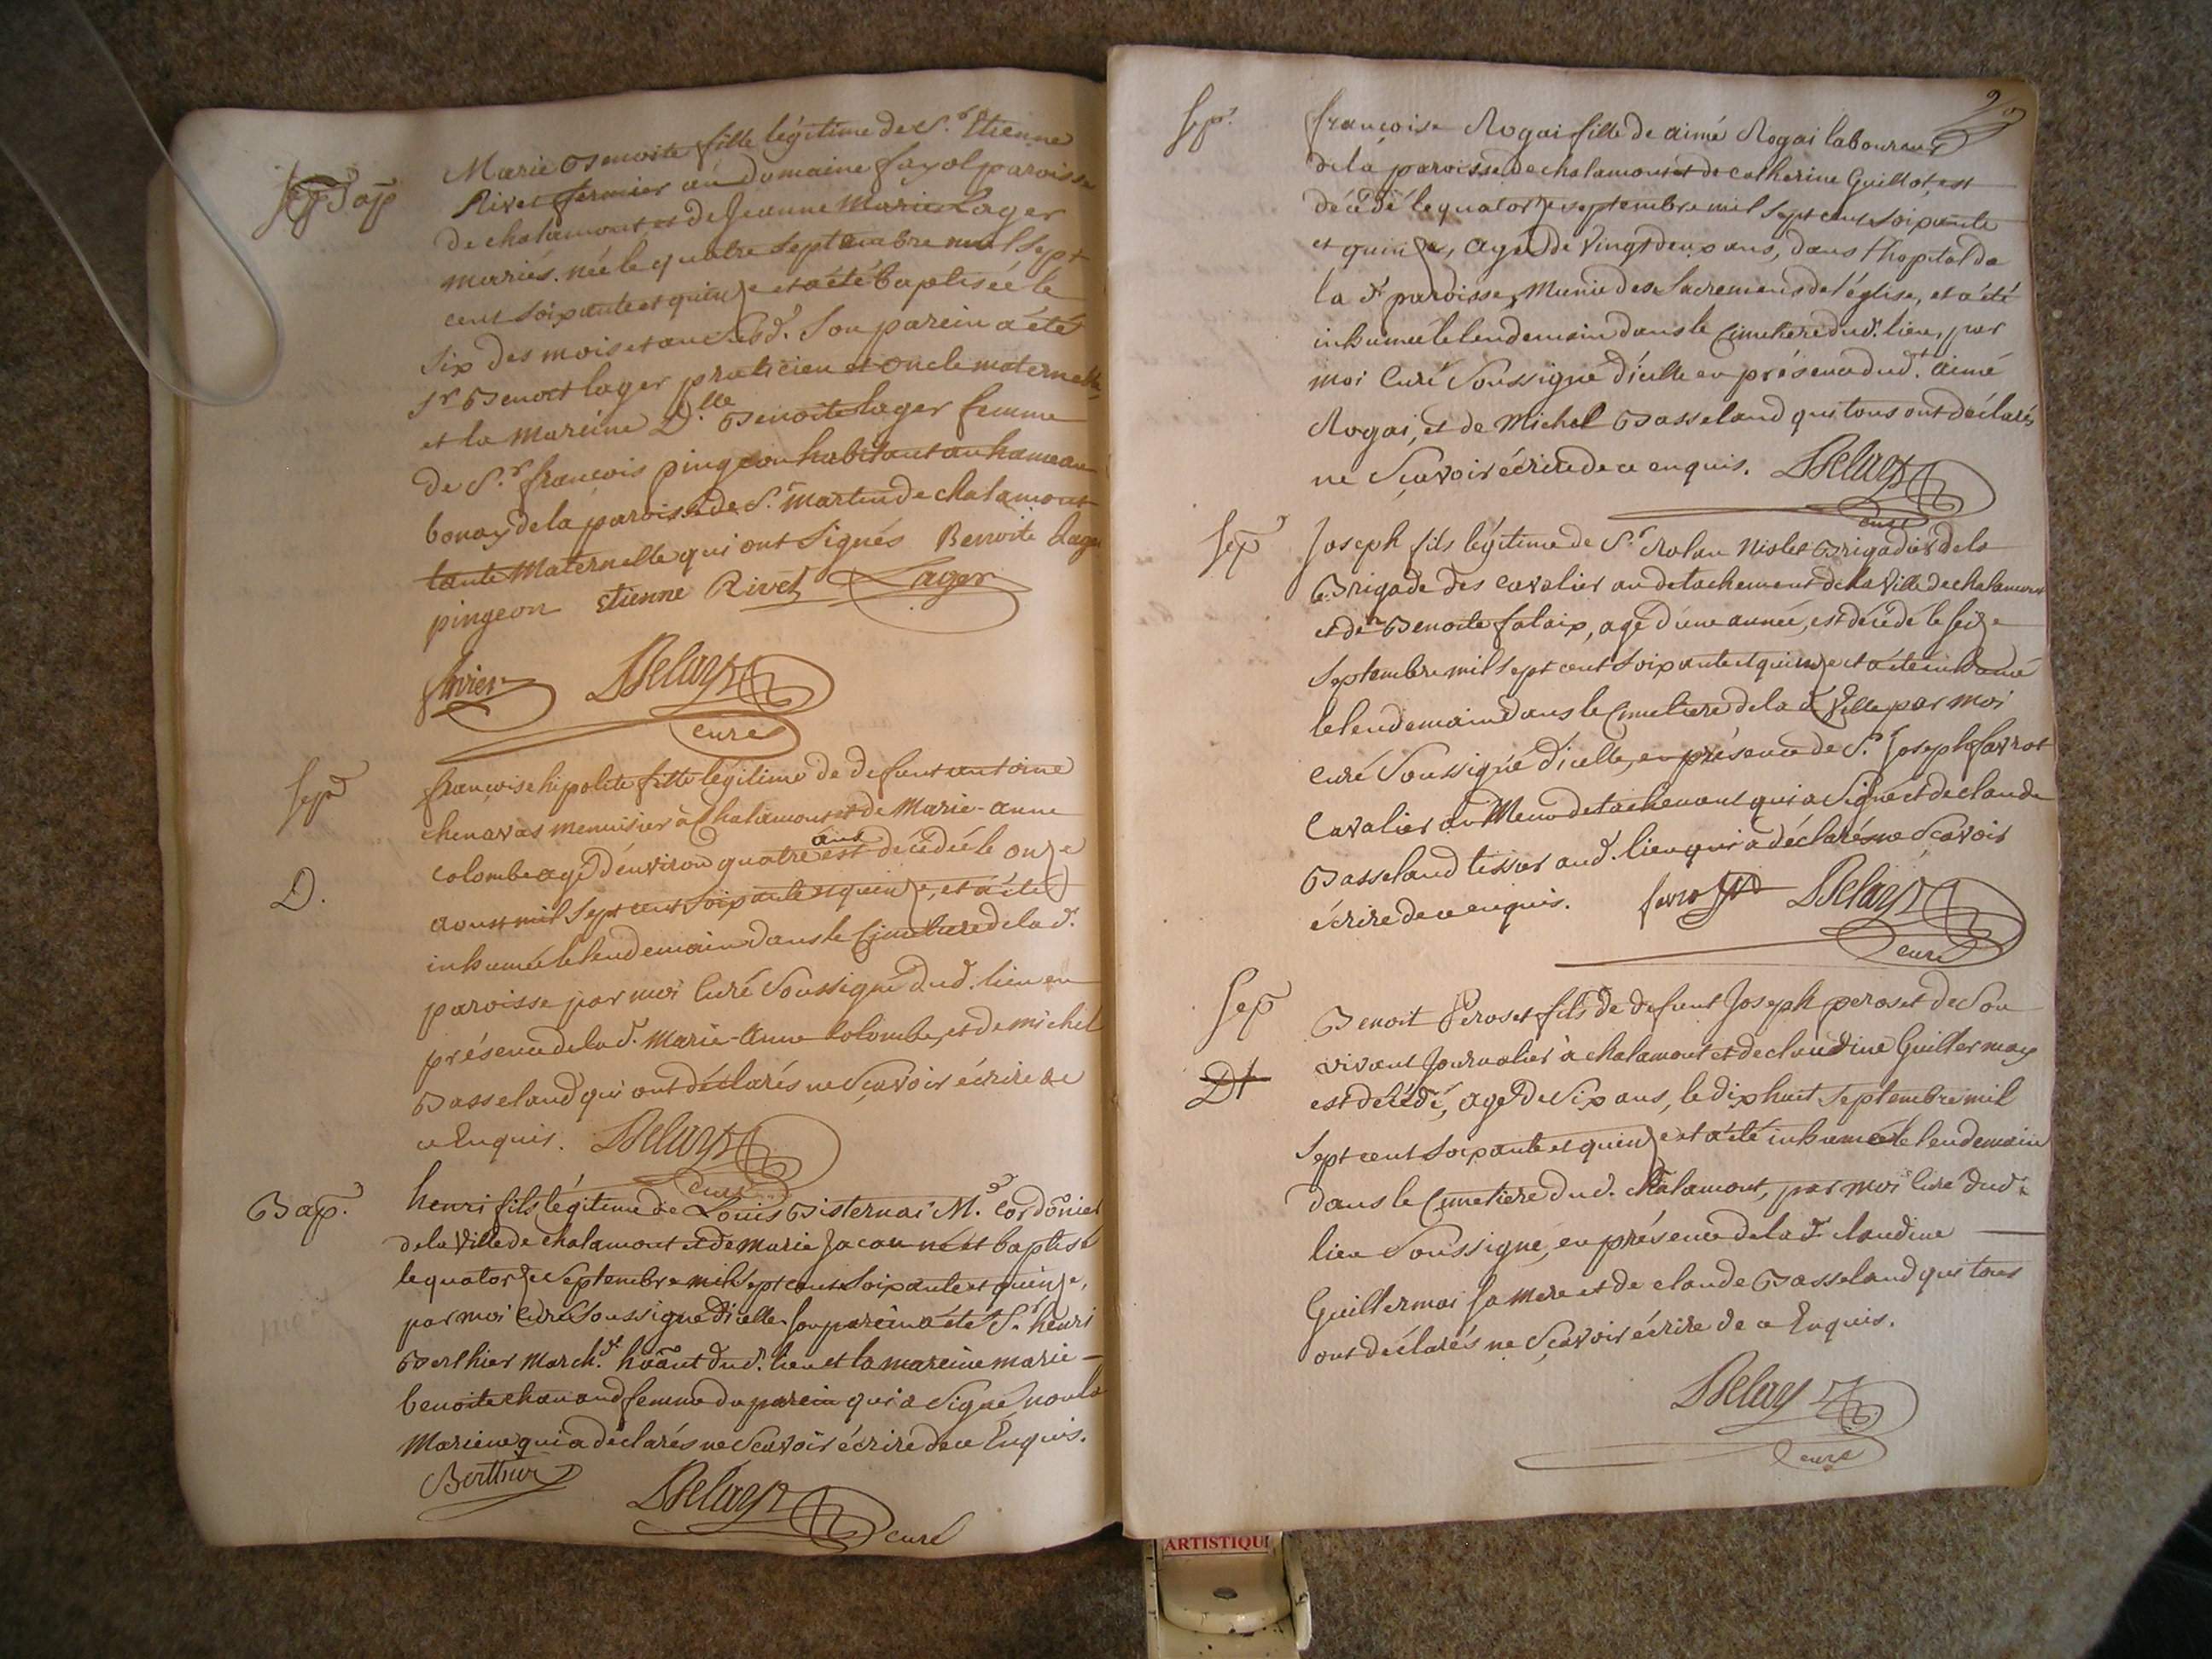 Bap
Marie Benoite fille légitime de S.r Etienne
Rivet fermier au domaine fayol paroisse
de chalamont et de Jeanne Marie Lager
mariés. née le quatre septembre mil sept
cent soixante et quinze et a été baptisée le
six des mois et an susd. son parein a été
S.r Benoit lager praticien et oncle maternelle,
et la mareine D.lle Benoite lager femme
de S.r françois pingeon habitant au hameau
bonay de la paroisse de S.t martin de chalamont
tante Maternelle qui ont signés Benoite Lager
pingeon etienne Rivet Lager
Delays
curé
Sep.
D.
françoise hipolite fille légitime de defunt antoine
chenavas menuisier à Chalamont et de Marie-anne
colombe agé d'environ quatre ans est decédée le onze
aoust mil sept cent soixante et quinze, et a été
inhumée le lendemain dans le Cimetiere de la d.
paroisse par moi Curé soussigné dud. lieu en
présence de la d. Marie-Anne Colombe, et de michel
Basseland qui ont déclarés ne sçavoir écrire de
ce Enquis. Delays
curé
Bap.
henri fils légitime de Louis Bisternai M.e cordonier
de la Ville de chalamont et de marie Jacou né et baptisé
le quatorze septembre mil sept cent soixante et quinze,
par moi Curé soussigné d'icelle son parein a été S.r henri
Berthier March.d hãant dud. lieu et la mareine marie-
benoite chanand femme du parein qui a signé non la
Mareine qui a déclarés ne Scavoir écrire de ce Enquis.
Berthier Delays curé
Sep.
françoise Rogai fille de aimé Rogai laboureur
de la paroisse de chalamont et de catherine Guillot est
décédé le quatorze septembre mil sept cent soixante
et quinze, agée de vingt deux ans, dans l'hopital de
la d. paroisse, Munie des Sacremens de l'église, et a été
inhumée le lendemain dans le Cimetiere dud. lieu, par
moi Curé soussigné d'icelle en présence dud. aimé
Rogai, et de Michel Basseland qui tous ont déclarés
ne Sçavoir écrire de ce enquis. Delays
curé
Sep
Joseph fils légitime de S.r Rolan Niolet Brigadier de la
Brigade des cavalier au detachement de la Ville de chalamont
et de Benoite falaix, agé d'une année, est décédé le seize
septembre mil sept cent soixante et quinze et a été inhumé
le lendemain dans le Cimetiere de la d. Ville par moi
curé soussigné d'icelle, en présence de S.r Joseph favrot
Cavalier au Meme detachement qui a signé et de claude
Basseland tissier aud. lieu qui a déclarés ne Scavoir
écrire de ce enquis. favrot Delays
curé
Sep
Benoit Peroset fils de defunt Joseph peroset de son
vivant Journalier à chalamont et de claudine Guillermay
est décédé, agé de six ans, le dix huit septembre mil
sept cent soixante et quinze et a été inhumé le lendemain
dans le Cimetiere dud. chalamont, par moi Curé dud.
lieu soussigné, en présence de la d. claudine
Guillermai sa mere et de claude Basseland qui tous
ont déclarés ne Sçavoir écrire de ce Enquis.
Delays
curé
ARTISTIQU